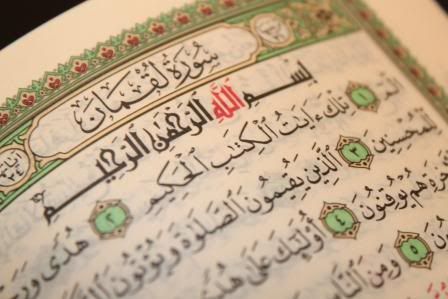 سُورَةُ لُقْمَانَ
بِسْمِ اللَّهِ الرَّحْمَٰنِ الرَّحِيمِ
الٓمٓ ١ تِلْكَ ءَايَٰتُ الْكِتَٰبِ الْحَكِيمِ ٢ هُدًى
٣ الَّذِينَ يُقِيمُونَ الصَّلَوٰةَ وَيُؤْتُونَ
هُمْ يُوقِنُونَ ٤ أُولَٰٓئِكَ عَلَىٰ
٥ وَمِنَ